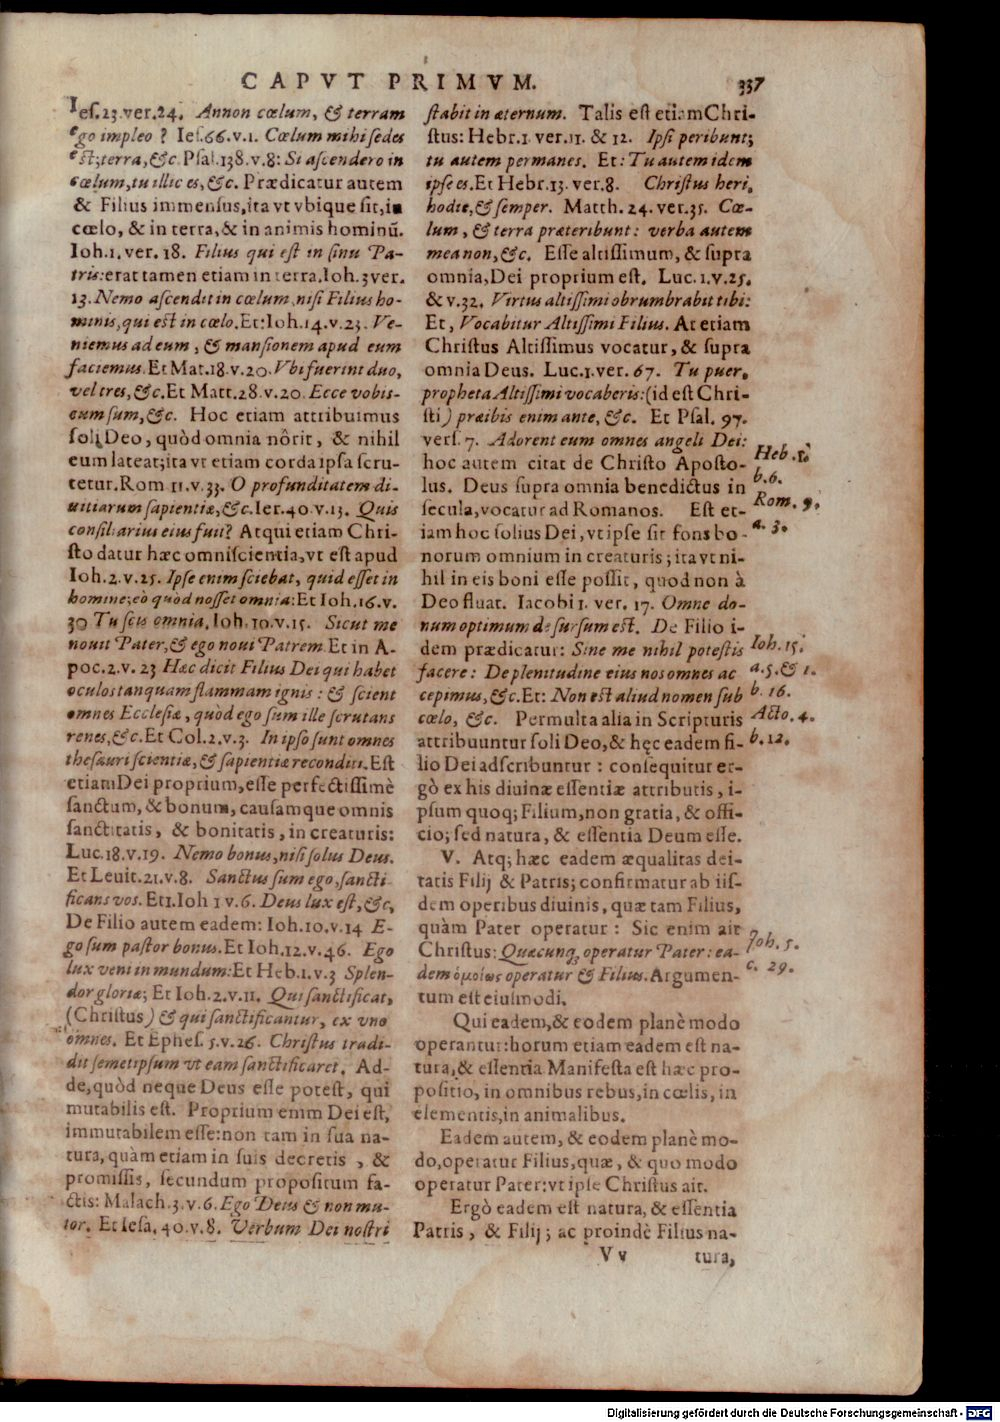 CAPVT PRIMVM. 337
Ies. 23. ver. 24. Annon cœlum, & terram
ego impleo? Ies. 66. v. 1. Cœlum mihi sedes
est; terra, &c. Psal. 138. v. 8: Si ascendero in
cœlum, tu illic es, &c. Prædicatur autem
& Filius immensus, ita vt vbique sit, in
cœlo, & in terra, & in animis hominũ.
Ioh. 1. ver. 18. Filius qui est in sinu Pa-
tris: erat tamen etiam in terra. Ioh. 3 ver.
13. Nemo ascendit in cœlum, nisi Filius ho-
minis, qui est in cœlo. Et: Ioh. 14. v. 23. Ve-
niemus ad eum, & mansionem apud eum
faciemus. Et Mat. 18. v. 20. Vbi fuerint duo,
vel tres, &c. Et Matt. 28. v. 20. Ecce vobis-
cum sum, &c. Hoc etiam attribuimus
soli Deo, quòd omnia nôrit, & nihil
eum lateat; ita vt etiam corda ipsa scru-
tetur. Rom 11. v. 33. O profunditatem di-
uitiarum sapientiæ, &c. Ier. 40. v. 13. Quis
consiliarius eius fuit? Atqui etiam Chri-
sto datur hæc omniscientia, vt est apud
Ioh. 2. v. 25. Ipse enim sciebat, quid esset in
homine; eò quòd nosset omnia: Et Ioh. 16. v.
30 Tu scis omnia. Ioh. 10. v. 15. Sicut me
nouit Pater, & ego noui Patrem. Et in A-
poc. 2. v. 23 Hæc dicit Filius Dei qui habet
oculos tanquam flammam ignis: & scient
omnes Ecclesiæ, quòd ego sum ille scrutans
renes, &c. Et Col. 2. v. 3. In ipso sunt omnes
thesauri scientiæ, & sapientiæ reconditi. Est
etiam Dei proprium, esse perfectissimè
sanctum, & bonum, causamque omnis
sanctitatis, & bonitatis, in creaturis:
Luc. 18. v. 19. Nemo bonus, nisi solus Deus.
Et Leuit. 21. v. 8. Sanctus sum ego, sancti-
ficans vos. Et 1. Ioh 1 v. 6. Deus lux est, &c,
De Filio autem eadem: Ioh. 10. v. 14 E-
go sum pastor bonus. Et Ioh. 12. v. 46. Ego
lux veni in mundum: Et Heb. 1. v. 3 Splen-
dor gloriæ; Et Ioh. 2. v. 11. Qui sanctificat,
(Christus) & qui sanctificantur, ex vno
omnes. Et Ephes. 5. v. 26. Christus tradi-
dit semetipsum vt eam sanctificaret. Ad-
de, quòd neque Deus esse potest, qui
mutabilis est. Proprium enim Dei est,
immutabilem esse: non tam in sua na-
tura, quàm etiam in suis decretis, &
promissis, secundum propositum fa-
ctis: Malach. 3. v. 6. Ego Deus & non mu-
tor. Et Iesa. 40. v. 8. Verbum Dei nostri
stabit in æternum. Talis est etiam Chri-
stus: Hebr. 1. ver. 11. & 12. Ipsi peribunt;
tu autem permanes. Et: Tu autem idem
ipse es. Et Hebr. 13. ver. 8. Christus heri,
hodie, & semper. Matth. 24. ver. 35. Cœ-
lum, & terra præteribunt: verba autem
mea non, &c. Esse altissimum, & supra
omnia, Dei proprium est. Luc. 1. v. 25.
& v. 32. Virtus altissimi obrumbrabit tibi:
Et, Vocabitur Altissimi Filius. At etiam
Christus Altissimus vocatur, & supra
omnia Deus. Luc. 1. ver. 67. Tu puer,
propheta Altissimi vocaberis: (id est Chri-
sti) præibis enim ante, &c. Et Psal. 97.
vers. 7. Adorent eum omnes angeli Dei:
hoc autem citat de Christo Aposto-
lus. Deus supra omnia benedictus in
secula, vocatur ad Romanos. Est et-
iam hoc solius Dei, vt ipse sit fons bo-
norum omnium in creaturis; ita vt ni-
hil in eis boni esse possit, quod non à
Deo fluat. Iacobi 1. ver. 17. Omne do-
num optimum desursum est. De Filio i-
dem prædicatur: Sine me nihil potestis
facere: De plenitudine eius nos omnes ac
cepimus, &c. Et: Non est aliud nomen sub
cœlo, &c. Permulta alia in Scripturis
attribuuntur soli Deo, & hęc eadem fi-
lio Dei adscribuntur: consequitur er-
gò ex his diuinæ essentiæ attributis, i-
psum quoq; Filium, non gratia, & offi-
cio; sed natura, & essentia Deum esse.
V. Atq; hæc eadem æqualitas dei-
tatis Filij & Patris; confirmatur ab iis-
dem operibus diuinis, quæ tam Filius,
quàm Pater operatur: Sic enim ait
Christus: Quæcunq; operatur Pater: ea-
dem ὁμοίως operatur & Filius. Argumen-
tum est eiusmodi.
Qui eadem, & eodem planè modo
operantur: horum etiam eadem est na-
tura, & essentia Manifesta est hæc pro-
positio, in omnibus rebus, in cœlis, in
elementis, in animalibus.
Eadem autem, & eodem planè mo-
do, operatur Filius, quæ, & quo modo
operatur Pater: vt ipse Christus ait.
Ergò eadem est natura, & essentia
Patris, & Filij; ac proindè Filius na-
Vv tura,
Heb. 1.
b. 6.
Rom. 9.
a. 3.
Ioh. 15.
a. 5. & 1.
b. 16.
Acto. 4.
b. 12.
Ioh. 5.
c. 29.
Digitalisierung gefördert durch die Deutsche Forschungsgemeinschaft - DFG